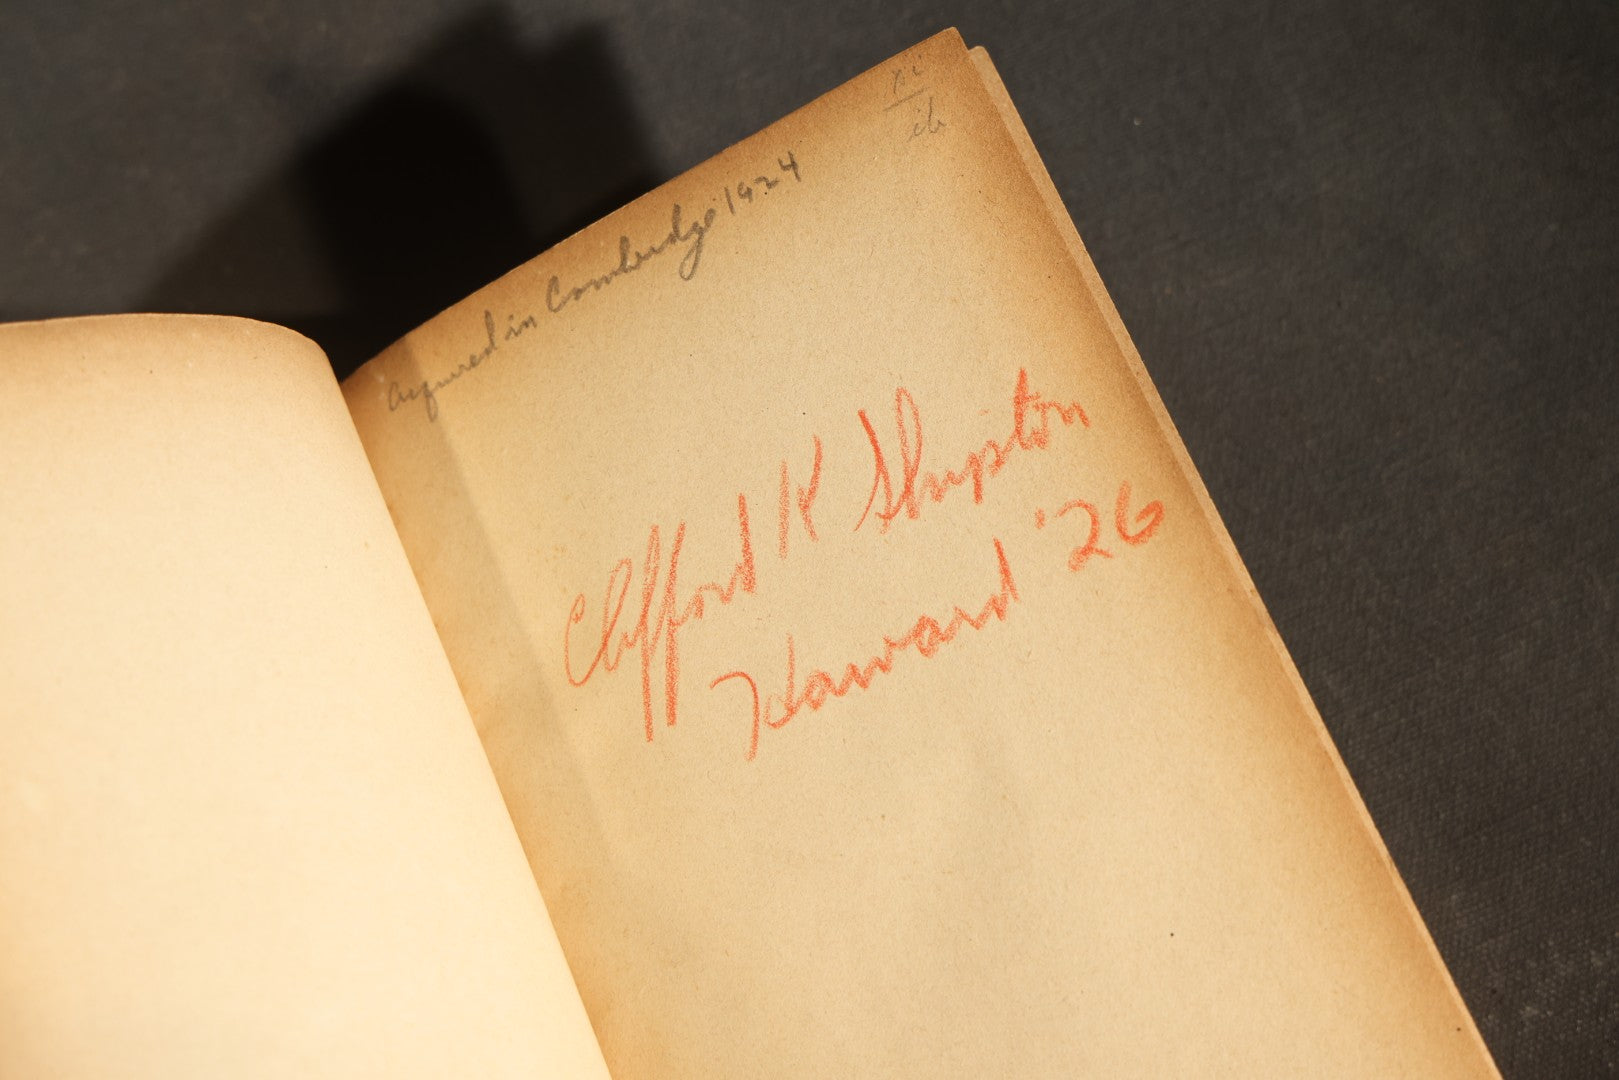 acquired in Cambridge 1924
Clifford K Shipton
Harvard '26